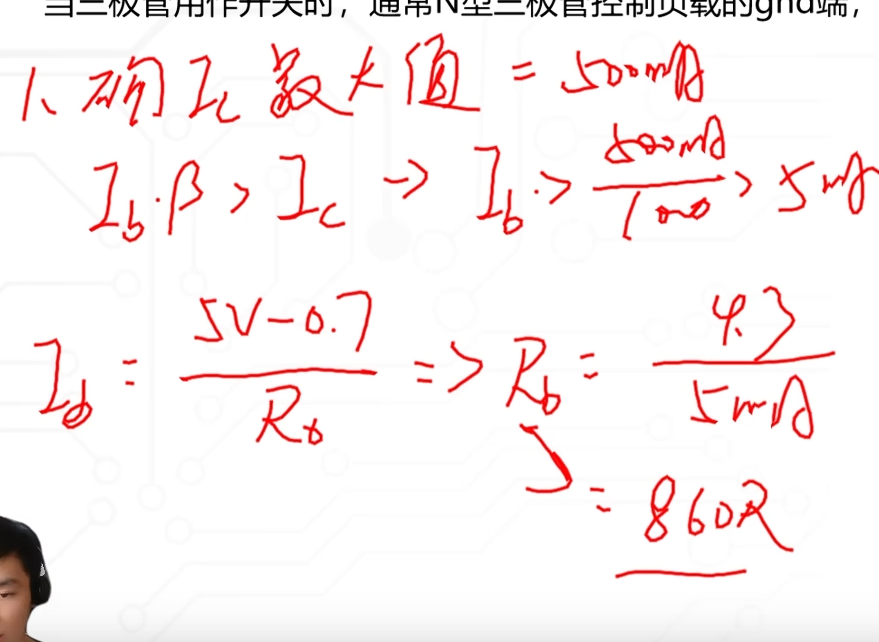 当三极管用作开关时，通常N型三极管控制负载的gnd端，
1、确 Ic 最大值 = 500mA
Ib·β > Ic → Ib > 500mA/100 > 5mA
Ib = (5V-0.7)/Rb => Rb = 4.3/5mA
= 860R